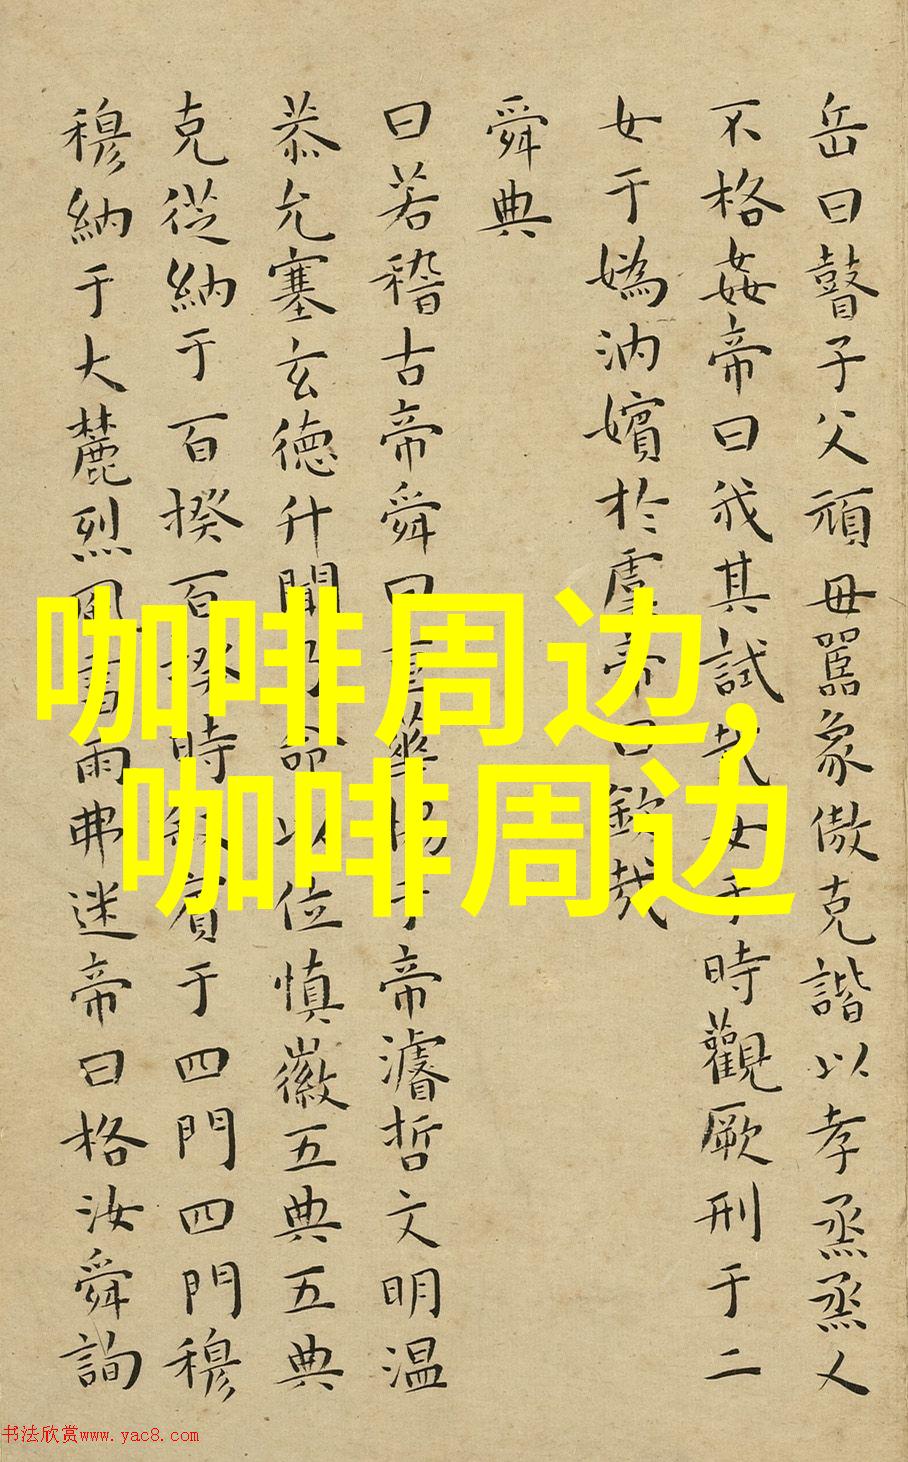 岳曰瞽子父頑母嚚象傲克諧以孝烝烝乂
不格姦帝曰我其試哉女于時觀厥刑于二
女于媯汭嬪於虞帝曰欽哉
舜典
曰若稽古帝舜曰重華協于帝濬哲文明温
恭允塞玄徳升聞乃命以位慎徽五典五典
克從納于百揆百揆時敘賓于四門四門穆
穆納于大麓烈風雷雨弗迷帝曰格汝舜詢
咖啡周边,
咖啡周边
书法欣赏www.yac8.com